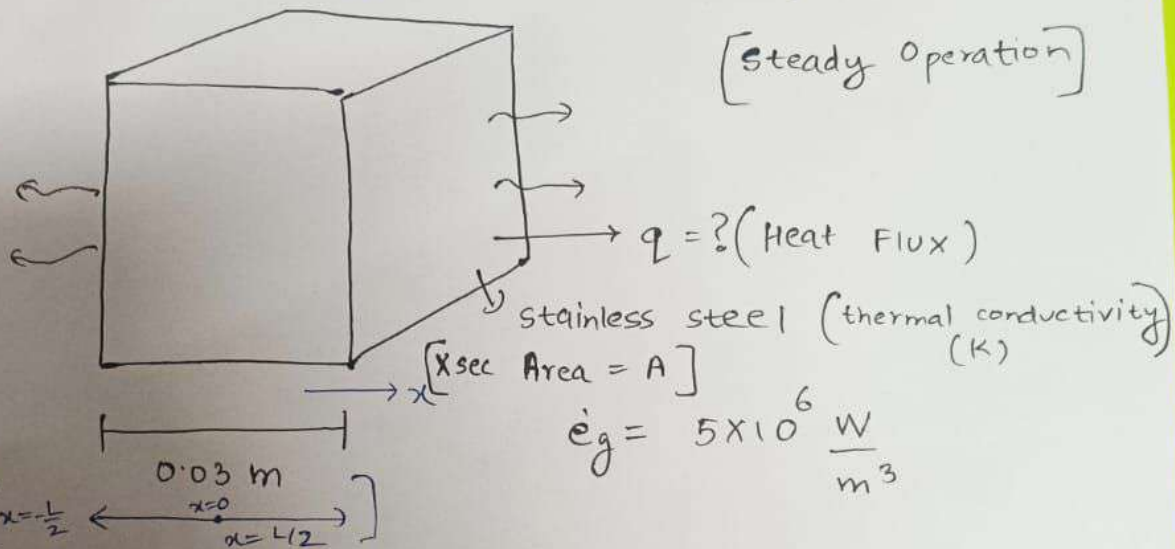 [Steady Operation]
q = ? (Heat Flux)
Stainless steel (thermal conductivity)
(K)
[Xsec Area = A]
x
ėg = 5×10⁶ W/m³
0.03 m
x=-L/2
x=0
x=L/2